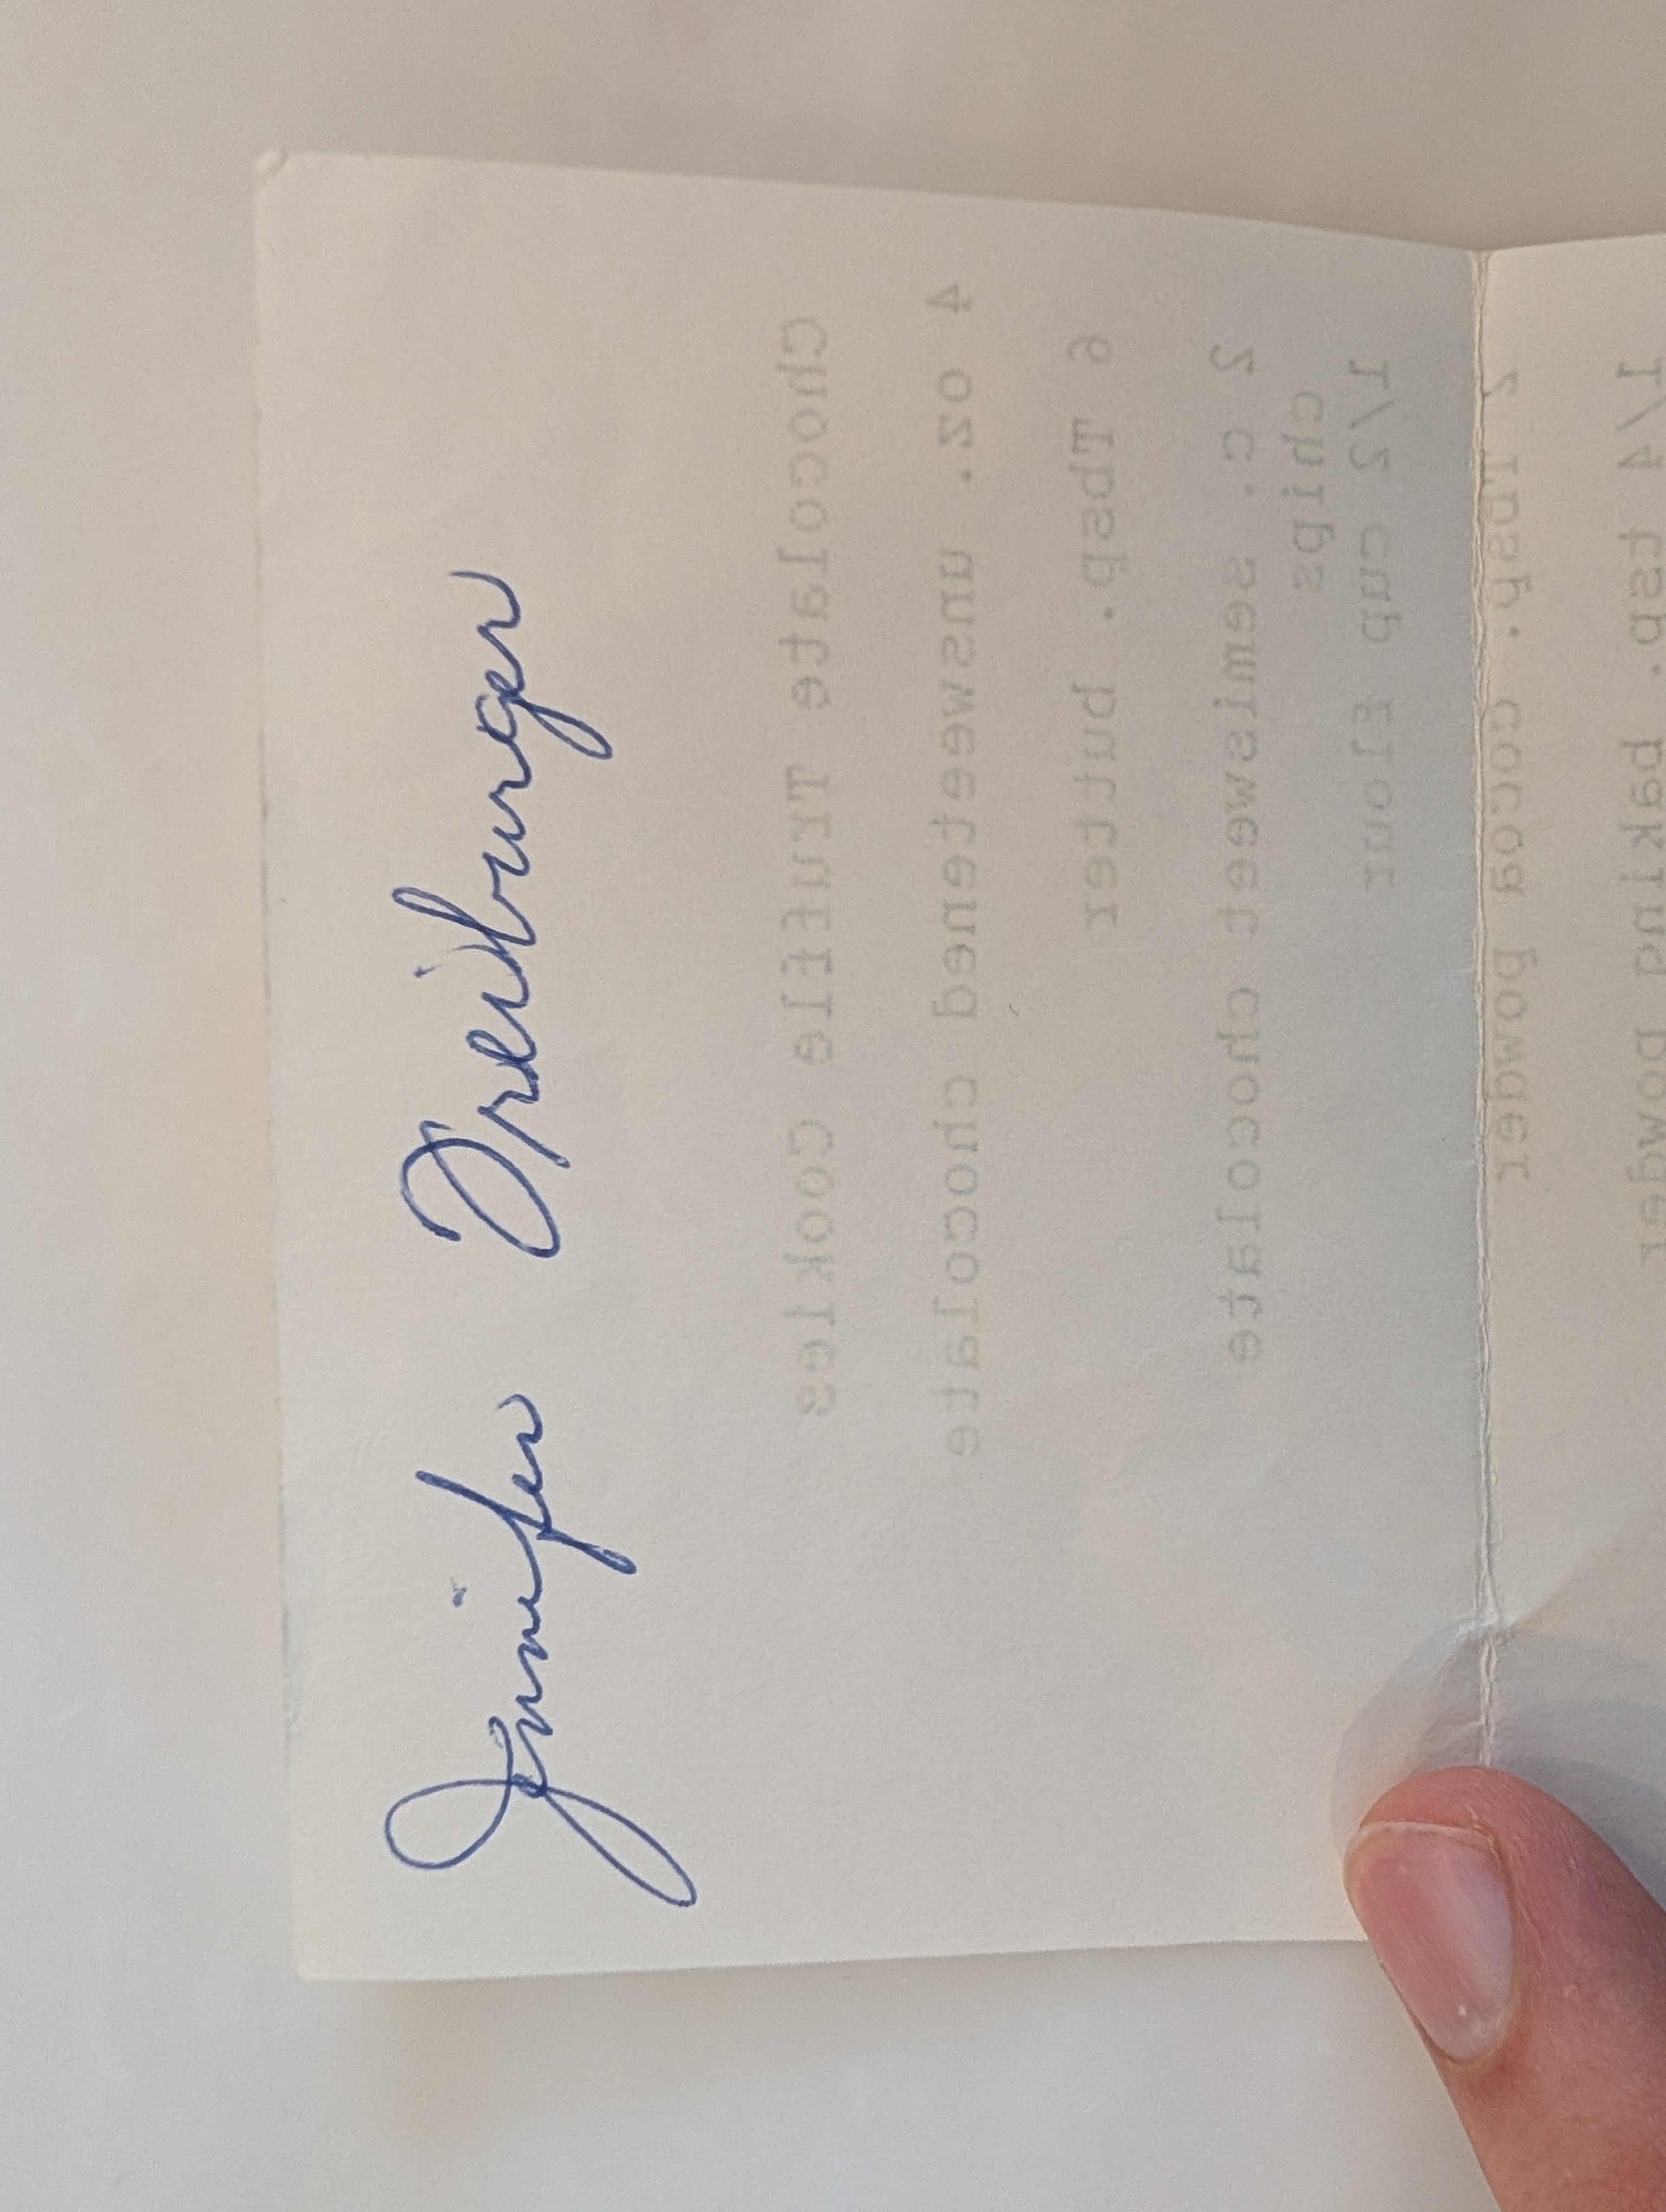 Jennifer Freiburger
Chocolate Truffle Cookies
4 oz. unsweetened chocolate
6 Tbsp. butter
2 c. semisweet chocolate
chips
1/2 cup flour
2 Tbsp. cocoa powder
1/4 tsp. baking powder